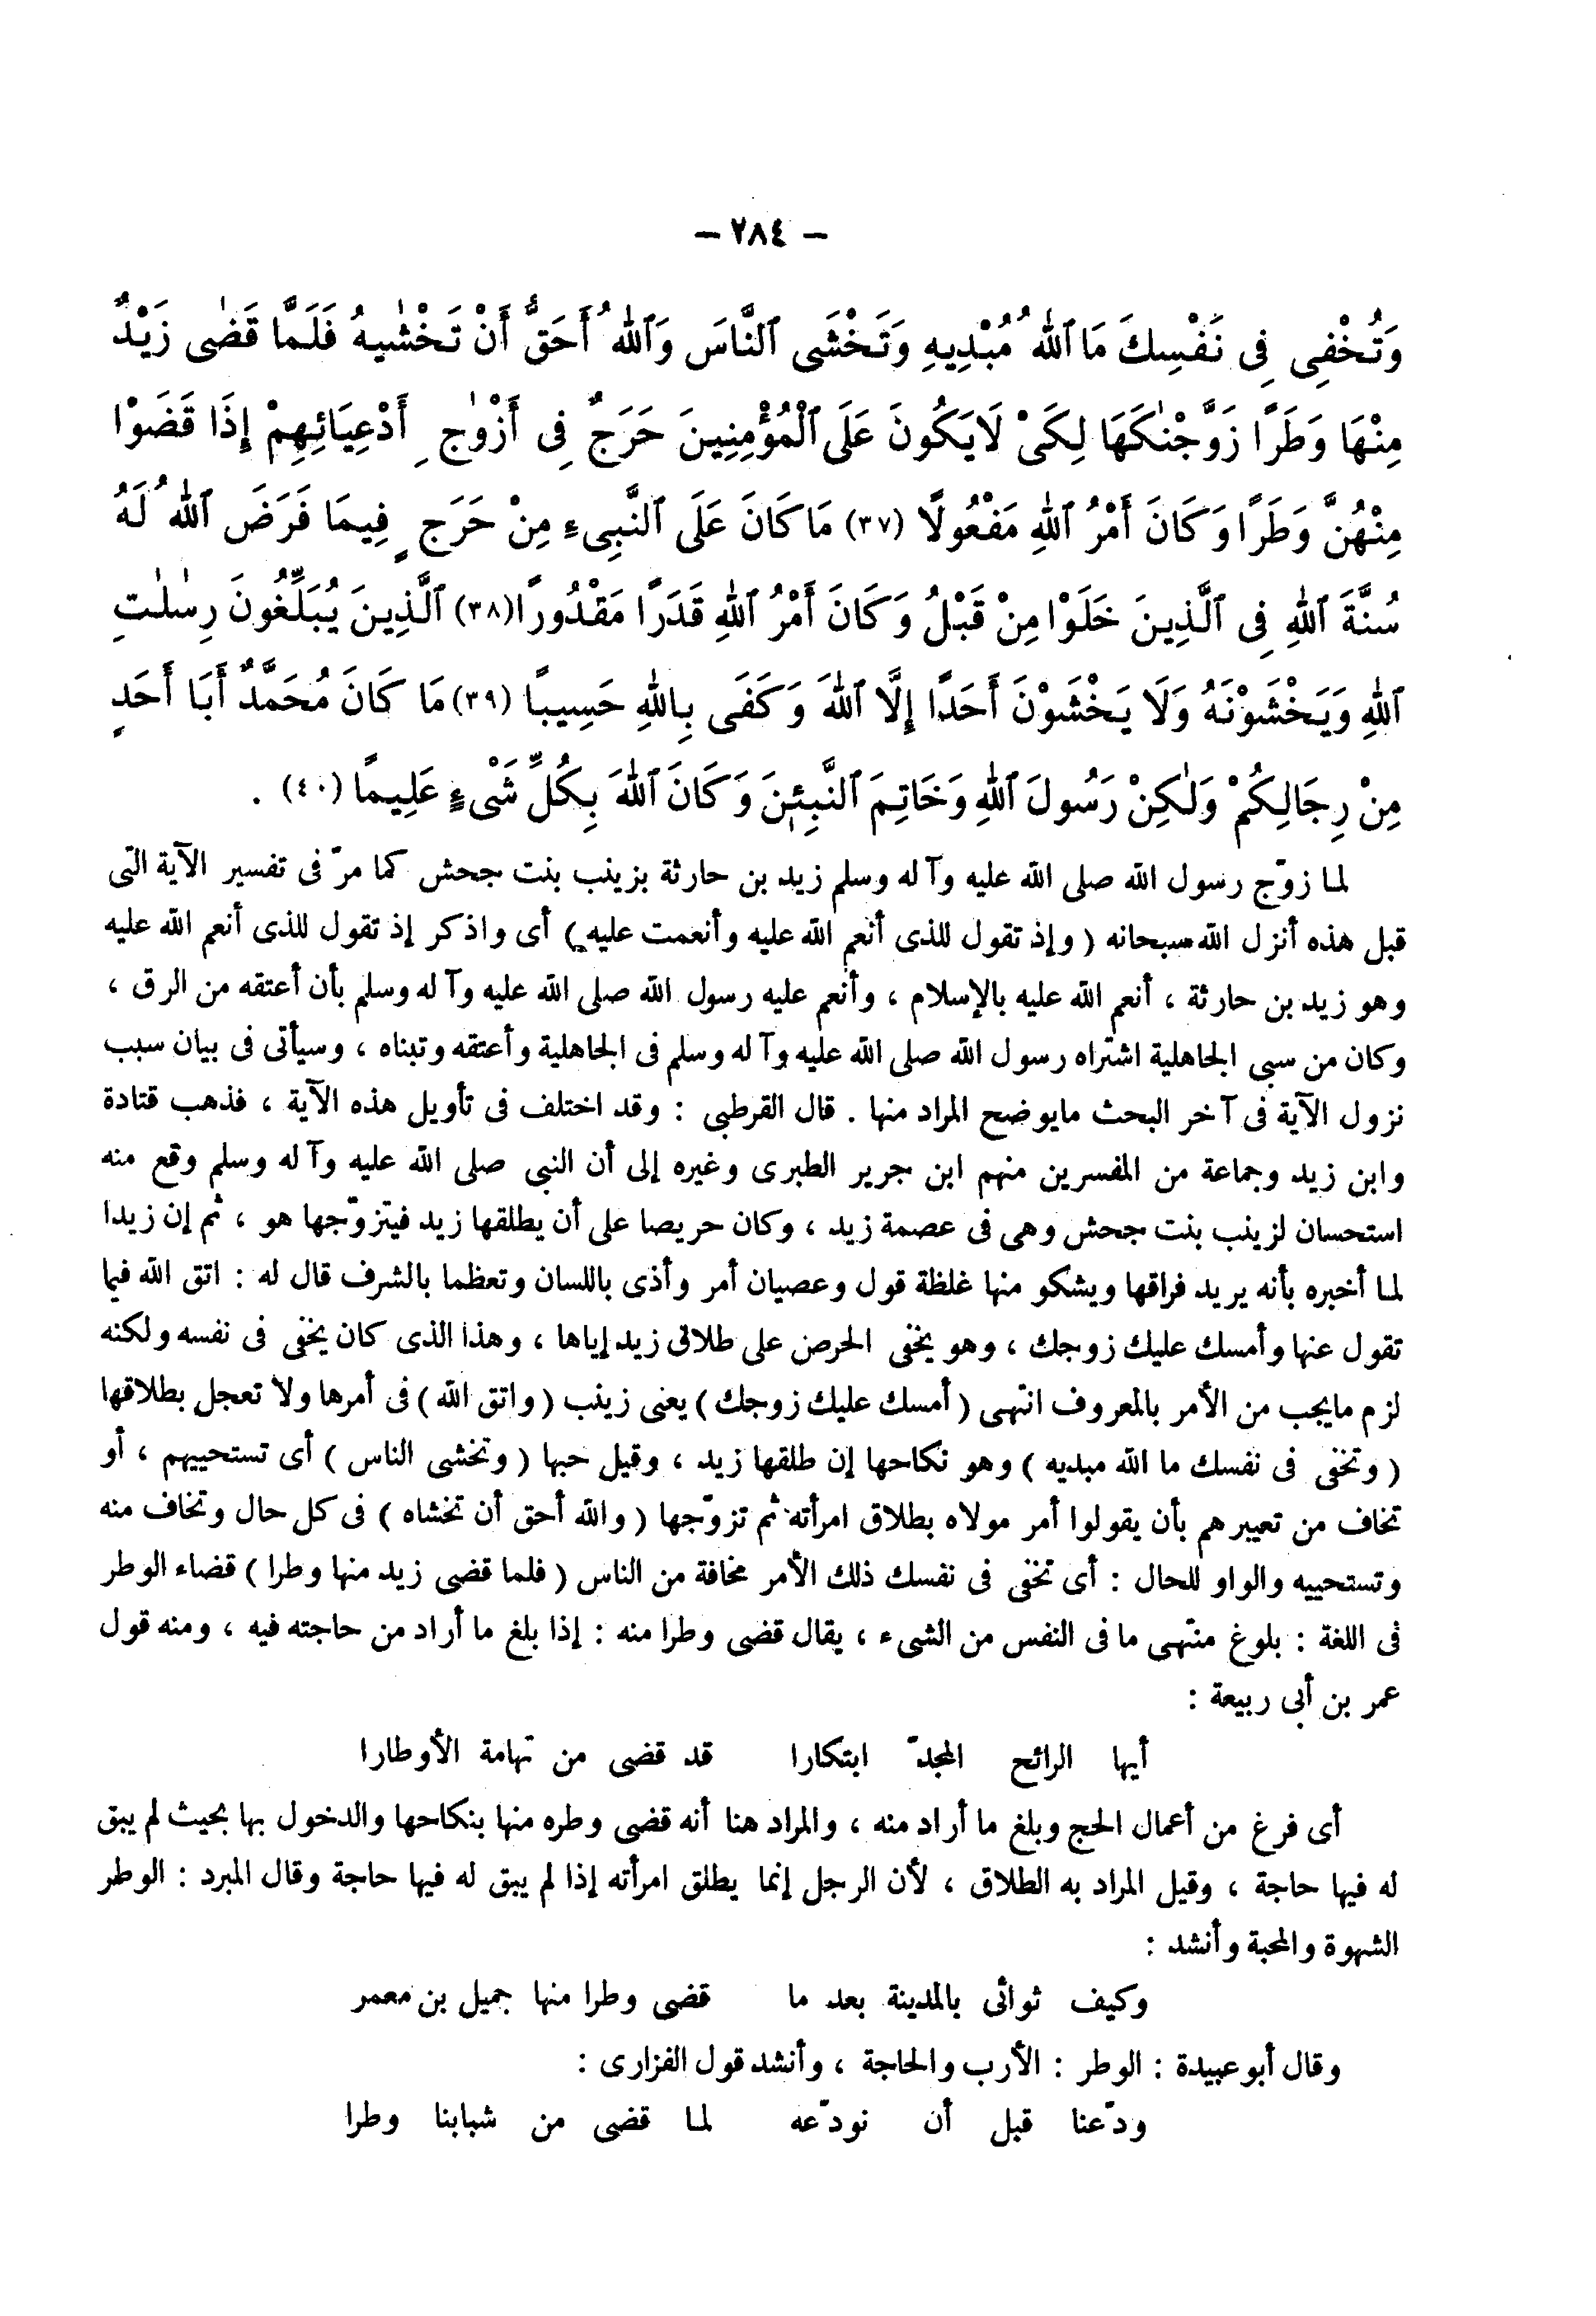 — ٢٨٤ —
وَتُخْفِى فِى نَفْسِكَ مَا ٱللهُ مُبْدِيهِ وَتَخْشَى ٱلنَّاسَ وَٱللهُ أَحَقُّ أَنْ تَخْشٰيهُ فَلَمَّا قَضٰى زَيْدٌ
مِنْهَا وَطَرًا زَوَّجْنٰكَهَا لِكَىْ لَايَكُونَ عَلَى ٱلْمُؤْمِنِينَ حَرَجٌ فِى أَزْوٰجِ أَدْعِيَائِهِمْ إِذَا قَضَوْا
مِنْهُنَّ وَطَرًا وَكَانَ أَمْرُ ٱللهِ مَفْعُولًا (٣٧) مَا كَانَ عَلَى ٱلنَّبِىءِ مِنْ حَرَجٍ فِيمَا فَرَضَ ٱللهُ لَهُ
سُنَّةَ ٱللهِ فِى ٱلَّذِينَ خَلَوْا مِنْ قَبْلُ وَكَانَ أَمْرُ ٱللهِ قَدَرًا مَقْدُورًا(٣٨) ٱلَّذِينَ يُبَلِّغُونَ رِسٰلٰتِ
ٱللهِ وَيَخْشَوْنَهُ وَلَا يَخْشَوْنَ أَحَدًا إِلَّا ٱللهَ وَكَفَى بِاللهِ حَسِيبًا (٣٩) مَا كَانَ مُحَمَّدٌ أَبَا أَحَدٍ
مِنْ رِجَالِكُمْ وَلٰكِنْ رَسُولَ ٱللهِ وَخَاتِمَ ٱلنَّبِيِّـنَ وَكَانَ ٱللهَ بِكُلِّ شَىْءٍ عَلِيمًا (٤٠) .
لما زوّج رسول الله صلى الله عليه وآله وسلم زيد بن حارثة بزينب بنت جحش كما مرّ فى تفسير الآية التى
قبل هذه أنزل الله سبحانه ( وإذ تقول للذى أنعم الله عليه وأنعمت عليه ) أى واذكر إذ تقول للذى أنعم الله عليه
وهو زيد بن حارثة ، أنعم الله عليه بالإسلام ، وأنعم عليه رسول الله صلى الله عليه وآله وسلم بأن أعتقه من الرق ،
وكان من سبى الجاهلية اشتراه رسول الله صلى الله عليه وآله وسلم فى الجاهلية وأعتقه وتبناه ، وسيأتى فى بيان سبب
نزول الآية فى آخر البحث مايوضح المراد منها . قال القرطبى : وقد اختلف فى تأويل هذه الآية ، فذهب قتادة
وابن زيد وجماعة من المفسرين منهم ابن جرير الطبرى وغيره إلى أن النبى صلى الله عليه وآله وسلم وقع منه
استحسان لزينب بنت جحش وهى فى عصمة زيد ، وكان حريصا على أن يطلقها زيد فيتزوّجها هو ، ثم إن زيدا
لما أخبره بأنه يريد فراقها ويشكو منها غلظة قول وعصيان أمر وأذى باللسان وتعظما بالشرف قال له : اتق الله فيما
تقول عنها وأمسك عليك زوجك ، وهو يخفى الحرص على طلاق زيد إياها ، وهذا الذى كان يخفى فى نفسه ولكنه
لزم مايجب من الأمر بالمعروف انتهى ( أمسك عليك زوجك ) يعنى زينب ( واتق الله ) فى أمرها ولا تعجل بطلاقها
( وتخفى فى نفسك ما الله مبديه ) وهو نكاحها إن طلقها زيد ، وقيل حبها ( وتخشى الناس ) أى تستحييهم ، أو
تخاف من تعييرهم بأن يقولوا أمر مولاه بطلاق امرأته ثم تزوّجها ( والله أحق أن تخشاه ) فى كل حال وتخاف منه
وتستحييه والواو للحال : أى تخفى فى نفسك ذلك الأمر مخافة من الناس ( فلما قضى زيد منها وطرا ) قضاء الوطر
فى اللغة : بلوغ منتهى ما فى النفس من الشىء ، يقال قضى وطرا منه : إذا بلغ ما أراد من حاجته فيه ، ومنه قول
عمر بن أبى ربيعة :
أيها الرائح المجدّ ابتكارا قد قضى من تهامة الأوطارا
أى فرغ من أعمال الحج وبلغ ما أراد منه ، والمراد هنا أنه قضى وطره منها بنكاحها والدخول بها بحيث لم يبق
له فيها حاجة ، وقيل المراد به الطلاق ، لأن الرجل إنما يطلق امرأته إذا لم يبق له فيها حاجة وقال المبرد : الوطر
الشهوة والمحبة وأنشد :
وكيف ثوائى بالمدينة بعد ما قضى وطرا منها جميل بن معمر
وقال أبو عبيدة : الوطر : الأرب والحاجة ، وأنشد قول الفزارى :
ودّعنا قبل أن نودّعه لما قضى من شبابنا وطرا